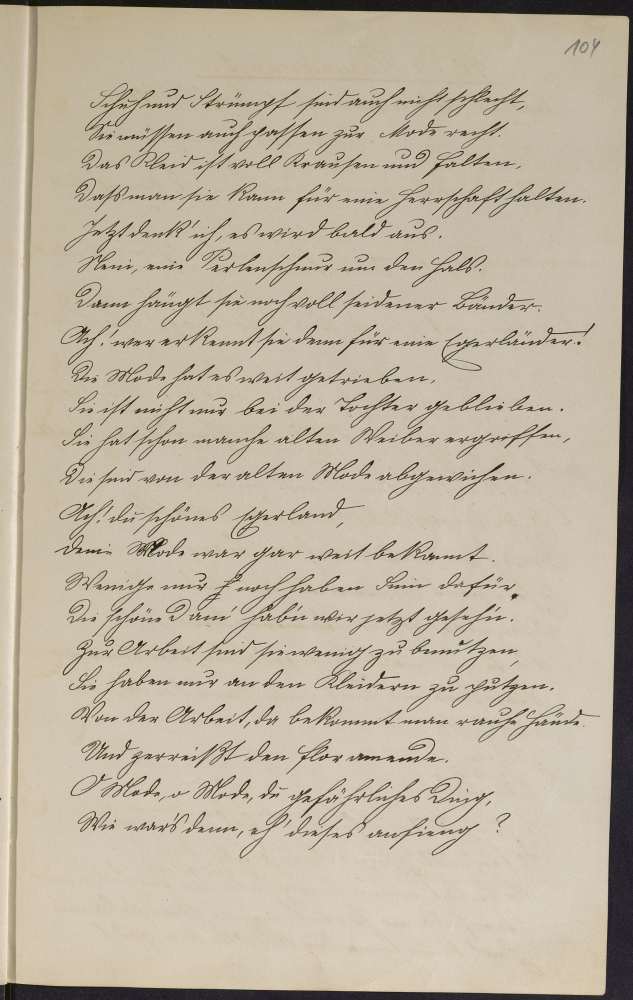 104
Schuh und Strümpf sind auch nicht schlecht,
Sie müssen auch passen zur Mode recht.
Das Kleid ist voll Krausen und Falten,
Daß man sie kann für eine Herrschaft halten.
Jetzt denk' ich, es wird bald aus.
Nein, eine Perlenschnur um den Hals.
Dann hängt sie noch voll seidener Bänder.
Ach! wer erkennt sie denn für eine Egerländer!
Die Mode hat es weit getrieben,
Sie ist nicht nur bei der Tochter geblieben.
Sie hat schon manche alten Weiber ergriffen,
Die sind von der alten Mode abgewichen.
Ach! du schönes Egerland,
Deine Mode war gar weit bekannt.
Wenige nur noch haben Sinn dafür,
Die schöne hab'n wir jetzt geseh'n.
Zur Arbeit sind sie wenig zu benutzen,
Sie haben nur an den Kleidern zu putzen.
Von der Arbeit, da bekommt man rauhe Hände
Und zerreißt den Flor am ende.
O Mode, o Mode, du gefährliches Ding,
Wie war's denn, eh' dieses anfieng?